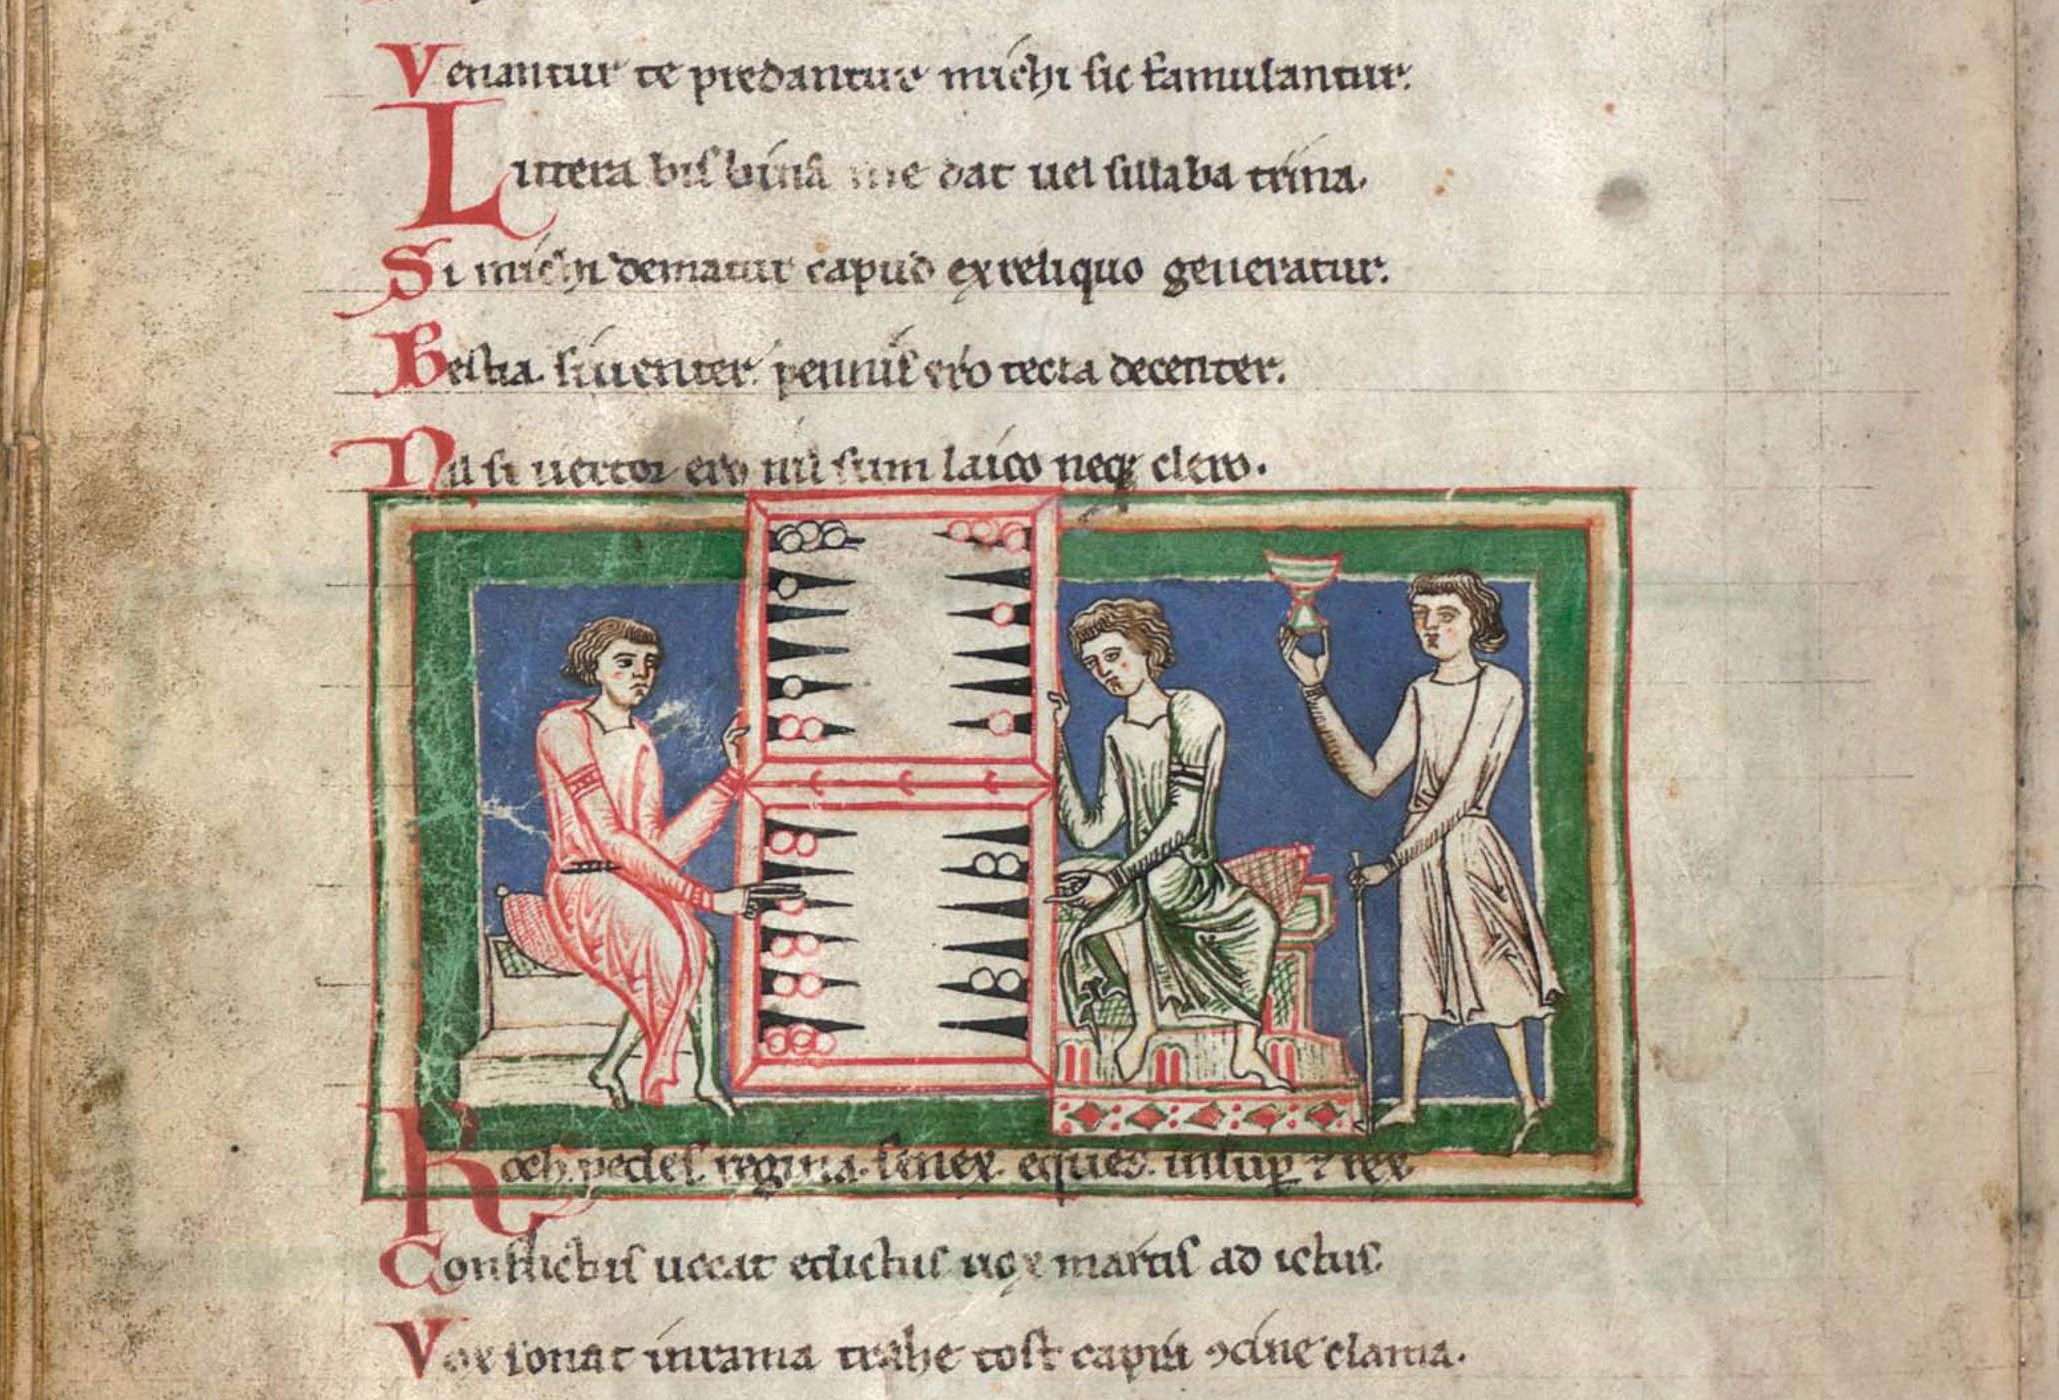 Venantur te predantur michi sic famulantur.
Littera bis bina me dat uel sillaba trina.
Si michi dematur capud ex reliquo generatur.
Bestia. si uenter. pennis ero tecta decenter.
Nil si uertor ero nil sum laico neq; clero.
Roch. pedes. regina. senex. eques. insup ⁊ rex
Conflictus uocat edictus uox martis ad ictus.
Vox sonat in trahe tost clama.